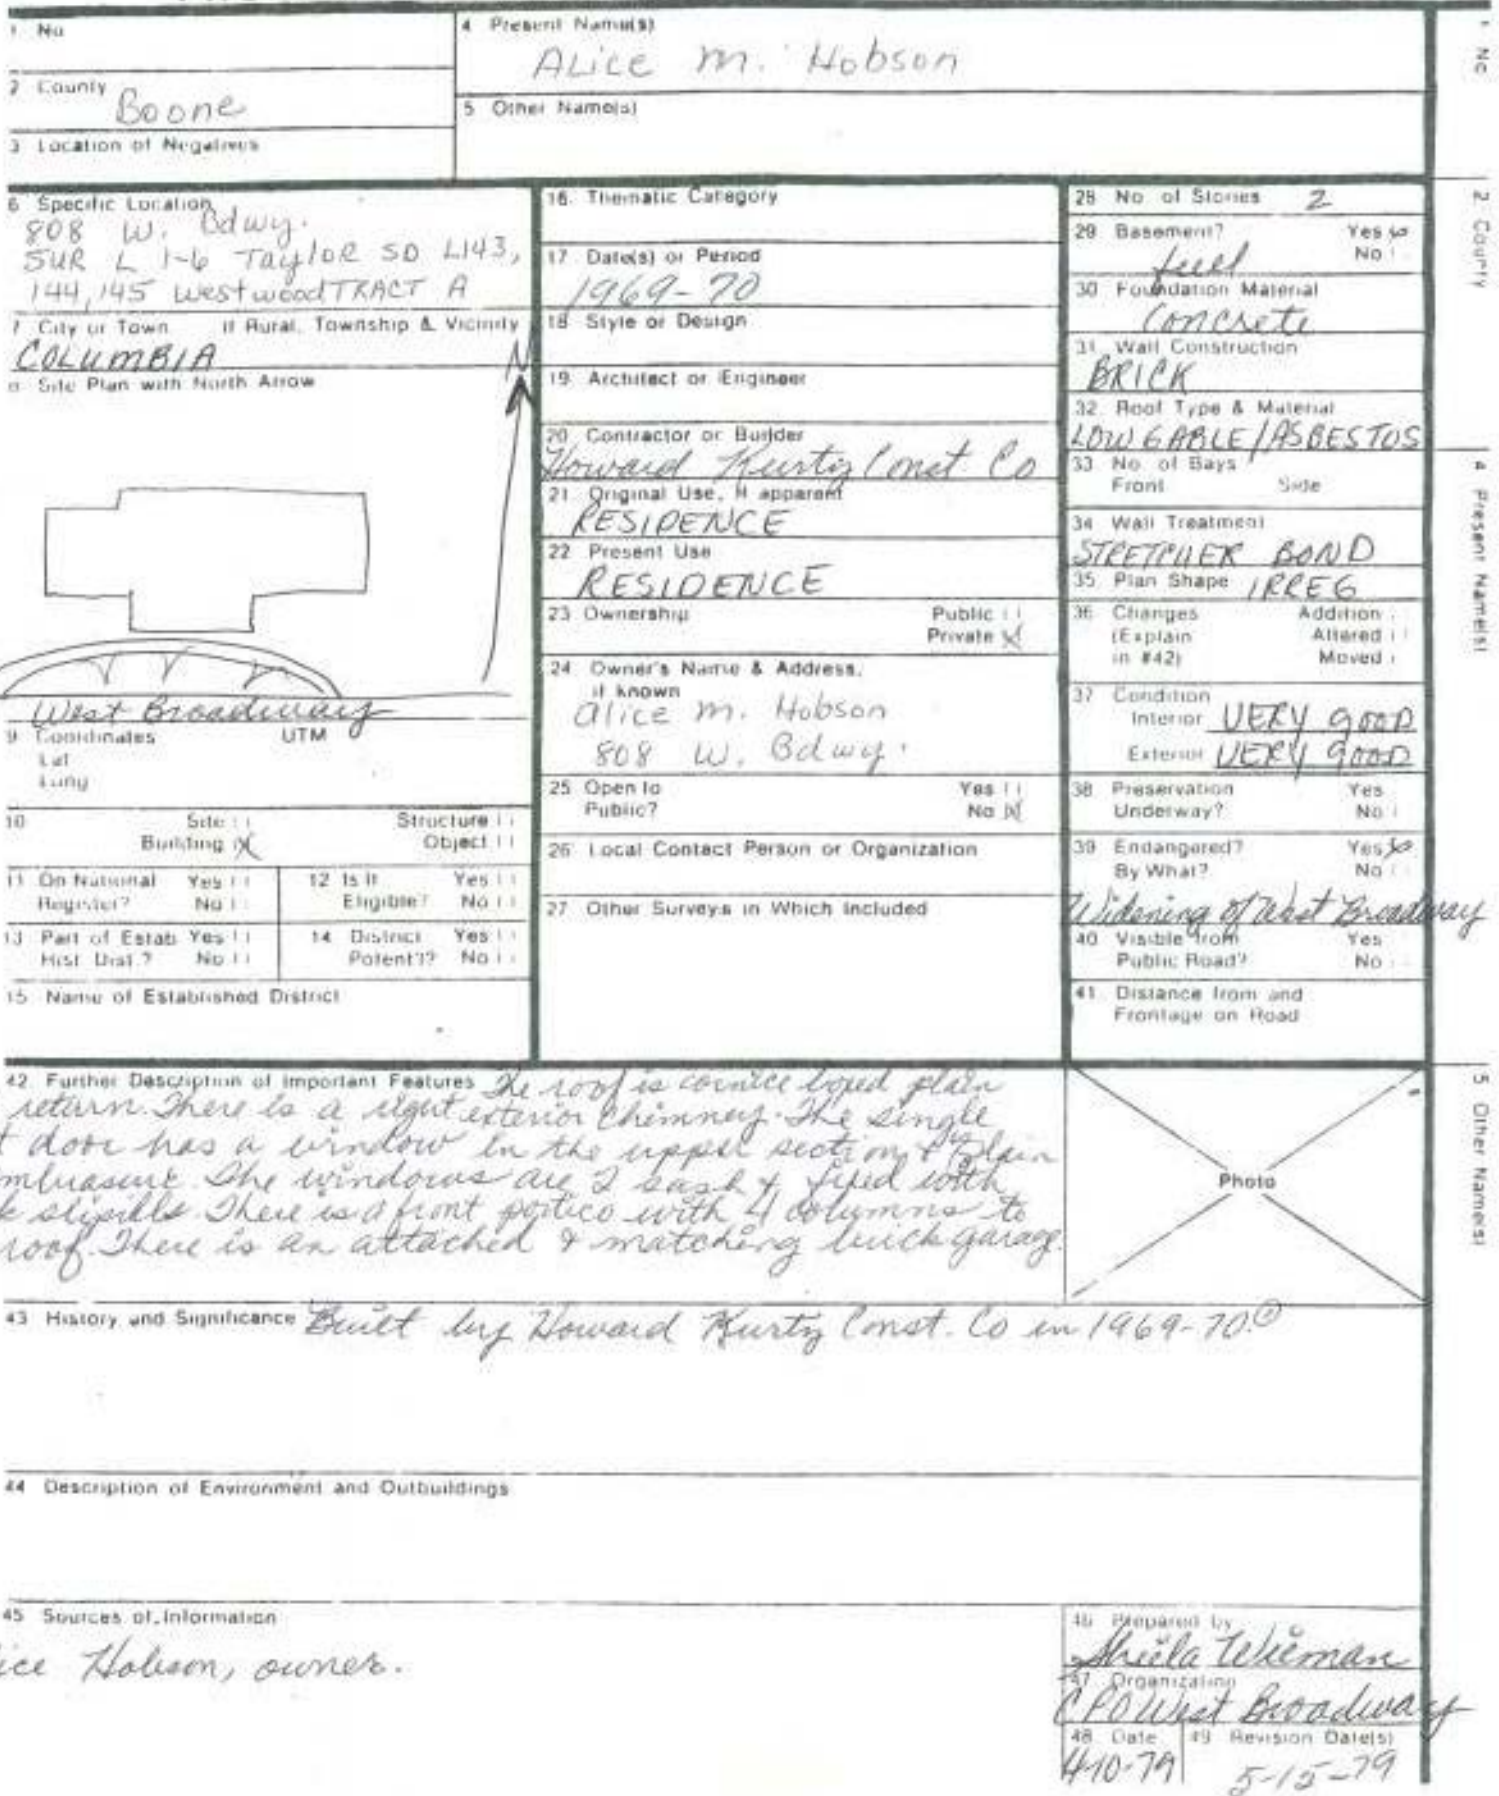 1 No
4 Present Name(s)
Alice M. Hobson
2 County
Boone
5 Other Name(s)
3 Location of Negatives
6 Specific Location
808 W. Bdwy.
SUR L 1-6 Taylor SD L143,
144, 145 Westwood TRACT A
7 City or Town If Rural, Township & Vicinity
COLUMBIA
8 Site Plan with North Arrow
N
West Broadway
9 Coordinates UTM
Lat
Long
10 Site Structure
Building X Object
11 On National Register? Yes No
12 Is It Eligible? Yes No
13 Part of Estab Hist Dist.? Yes No
14 District Potent'l? Yes No
15 Name of Established District
16. Thematic Category
17 Date(s) or Period
1969-70
18 Style or Design
19 Architect or Engineer
20 Contractor or Builder
Howard Kurtz Const. Co
21 Original Use, if apparent
RESIDENCE
22 Present Use
RESIDENCE
23 Ownership Public
Private X
24 Owner's Name & Address,
if known
Alice M. Hobson
808 W. Bdwy.
25 Open to Yes
Public? No X
26 Local Contact Person or Organization
27 Other Surveys in Which Included
28 No. of Stories 2
29 Basement? Yes
No
full
30 Foundation Material
Concrete
31 Wall Construction
BRICK
32 Roof Type & Material
LOW GABLE/ASBESTOS
33 No. of Bays
Front Side
34 Wall Treatment
STRETCHER BOND
35 Plan Shape IRREG
36 Changes Addition
(Explain Altered
in #42) Moved
37 Condition
Interior VERY GOOD
Exterior VERY GOOD
38 Preservation Yes
Underway? No
39 Endangered? Yes
By What? No
Widening of West Broadway
40 Visible from Yes
Public Road? No
41 Distance from and
Frontage on Road
42 Further Description of Important Features The roof is cornice boxed plain
return. There is a right exterior chimney. The single
door has a window in the upper section & plain
The windows are 2 sash & fixed with
slipsills. There is a front portico with 4 columns to
roof. There is an attached & matching brick garage.
Photo
43 History and Significance Built by Howard Kurtz Const. Co in 1969-70.
44 Description of Environment and Outbuildings
45 Sources of Information
ice Hobson, owner.
46 Prepared by
Sheila Wieman
47 Organization
CPO West Broadway
48 Date
4-10-79
49 Revision Date(s)
5-15-79
1 No
2 County
4 Present Name(s)
5 Other Name(s)